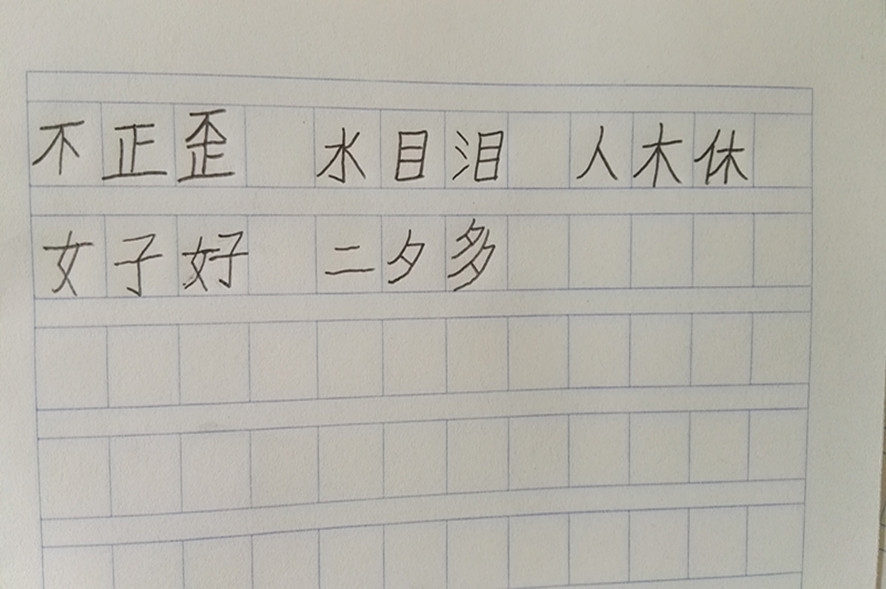 不正歪 水目泪 人木休
女子好 二夕多